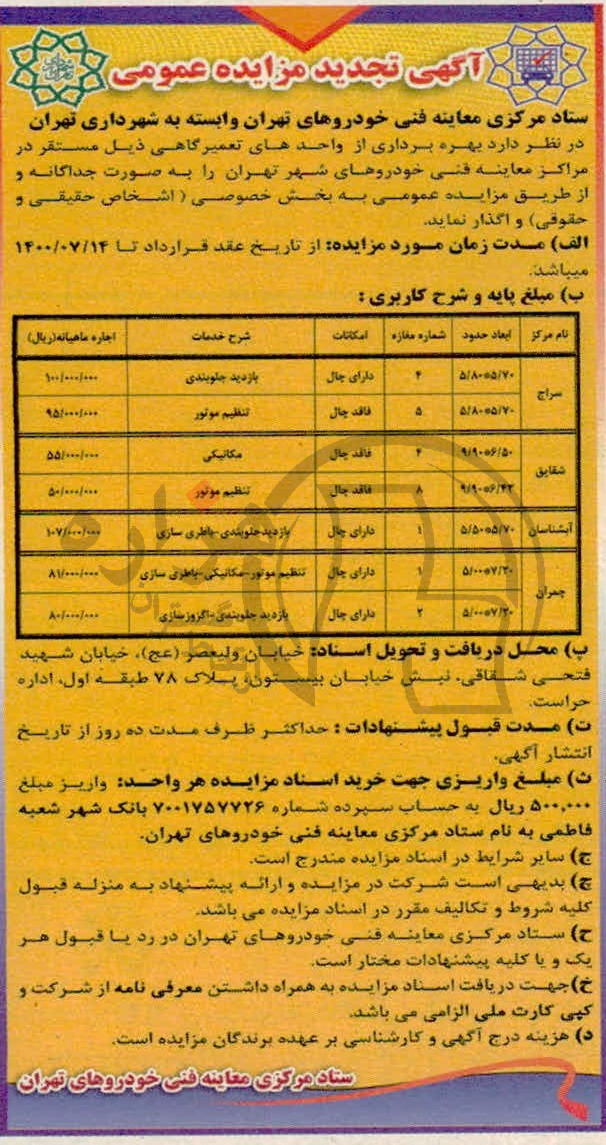 آگهی تجدید مزایده عمومی
ستاد مرکزی معاینه فنی خودروهای تهران وابسته به شهرداری تهران
در نظر دارد بهره برداری از واحد های تعمیرگاهی ذیل مستقر در
مراکز معاینه فنی خودروهای شهر تهران را به صورت جداگانه و
از طریق مزایده عمومی به بخش خصوصی (اشخاص حقیقی و
حقوقی) و اگذار نماید.
الف) مدت زمان مورد مزایده: از تاریخ عقد قرارداد تا ۱۴۰۰/۰۷/۱۴
میباشد.
ب) مبلغ پایه و شرح کاربری :
نام مرکز ابعاد حدود شماره مغازه امکانات شرح خدمات اجاره ماهیانه(ریال)
سراج ۵/۸۰*۵/۷۰ ۴ دارای چال بازدید جلوبندی ۱۰۰/۰۰۰/۰۰۰
۵/۸۰*۵/۷۰ ۵ فاقد چال تنظیم موتور ۹۵/۰۰۰/۰۰۰
شقایق ۹/۹۰*۶/۵۰ ۴ فاقد چال مکانیکی ۵۵/۰۰۰/۰۰۰
۹/۹۰*۶/۴۳ ۸ فاقد چال تنظیم موتور ۵۰/۰۰۰/۰۰۰
آبشناسان ۵/۵۰*۵/۷۰ ۱ دارای چال بازدیدجلوبندی-باطری سازی ۱۰۷/۰۰۰/۰۰۰
چمران ۵/۰۰*۷/۲۰ ۱ دارای چال تنظیم موتور-مکانیکی-باطری سازی ۸۱/۰۰۰/۰۰۰
۵/۰۰*۷/۲۰ ۲ دارای چال بازدید جلوبندی-اگزوزسازی ۸۰/۰۰۰/۰۰۰
پ) محل دریافت و تحویل اسناد: خیابان ولیعصر (عج)، خیابان شهید
فتحی شقاقی، نبش خیابان بیستون، پلاک ۷۸ طبقه اول، اداره
حراست.
ت) مدت قبول پیشنهادات : حداکثر ظرف مدت ده روز از تاریخ
انتشار آگهی.
ث) مبلغ واریزی جهت خرید اسناد مزایده هر واحد: واریز مبلغ
۵۰۰,۰۰۰ ریال به حساب سپرده شماره ۷۰۰۱۷۵۷۷۲۶ بانک شهر شعبه
فاطمی به نام ستاد مرکزی معاینه فنی خودروهای تهران.
ج) سایر شرایط در اسناد مزایده مندرج است.
چ) بدیهی است شرکت در مزایده و ارائه پیشنهاد به منزله قبول
کلیه شروط و تکالیف مقرر در اسناد مزایده می باشد.
ح) ستاد مرکزی معاینه فنی خودروهای تهران در رد یا قبول هر
یک و یا کلیه پیشنهادات مختار است.
خ)جهت دریافت اسناد مزایده به همراه داشتن معرفی نامه از شرکت و
کپی کارت ملی الزامی می باشد.
د) هزینه درج آگهی و کارشناسی بر عهده برندگان مزایده است.
ستاد مرکزی معاینه فنی خودروهای تهران